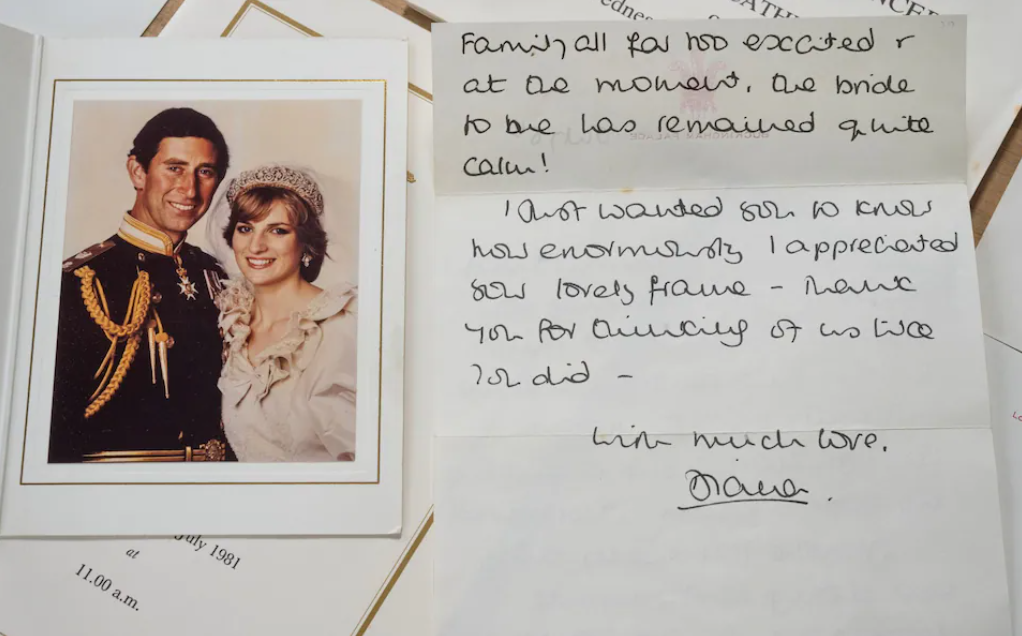 Family all far too excited
at the moment, the bride
to be has remained quite
calm!
I just wanted you to know
how enormously I appreciated
your lovely frame – Thank
you for thinking of us like
You did –
With much love.
Diana.
BUCKINGHAM PALACE
July 1981
at
11.00 a.m.